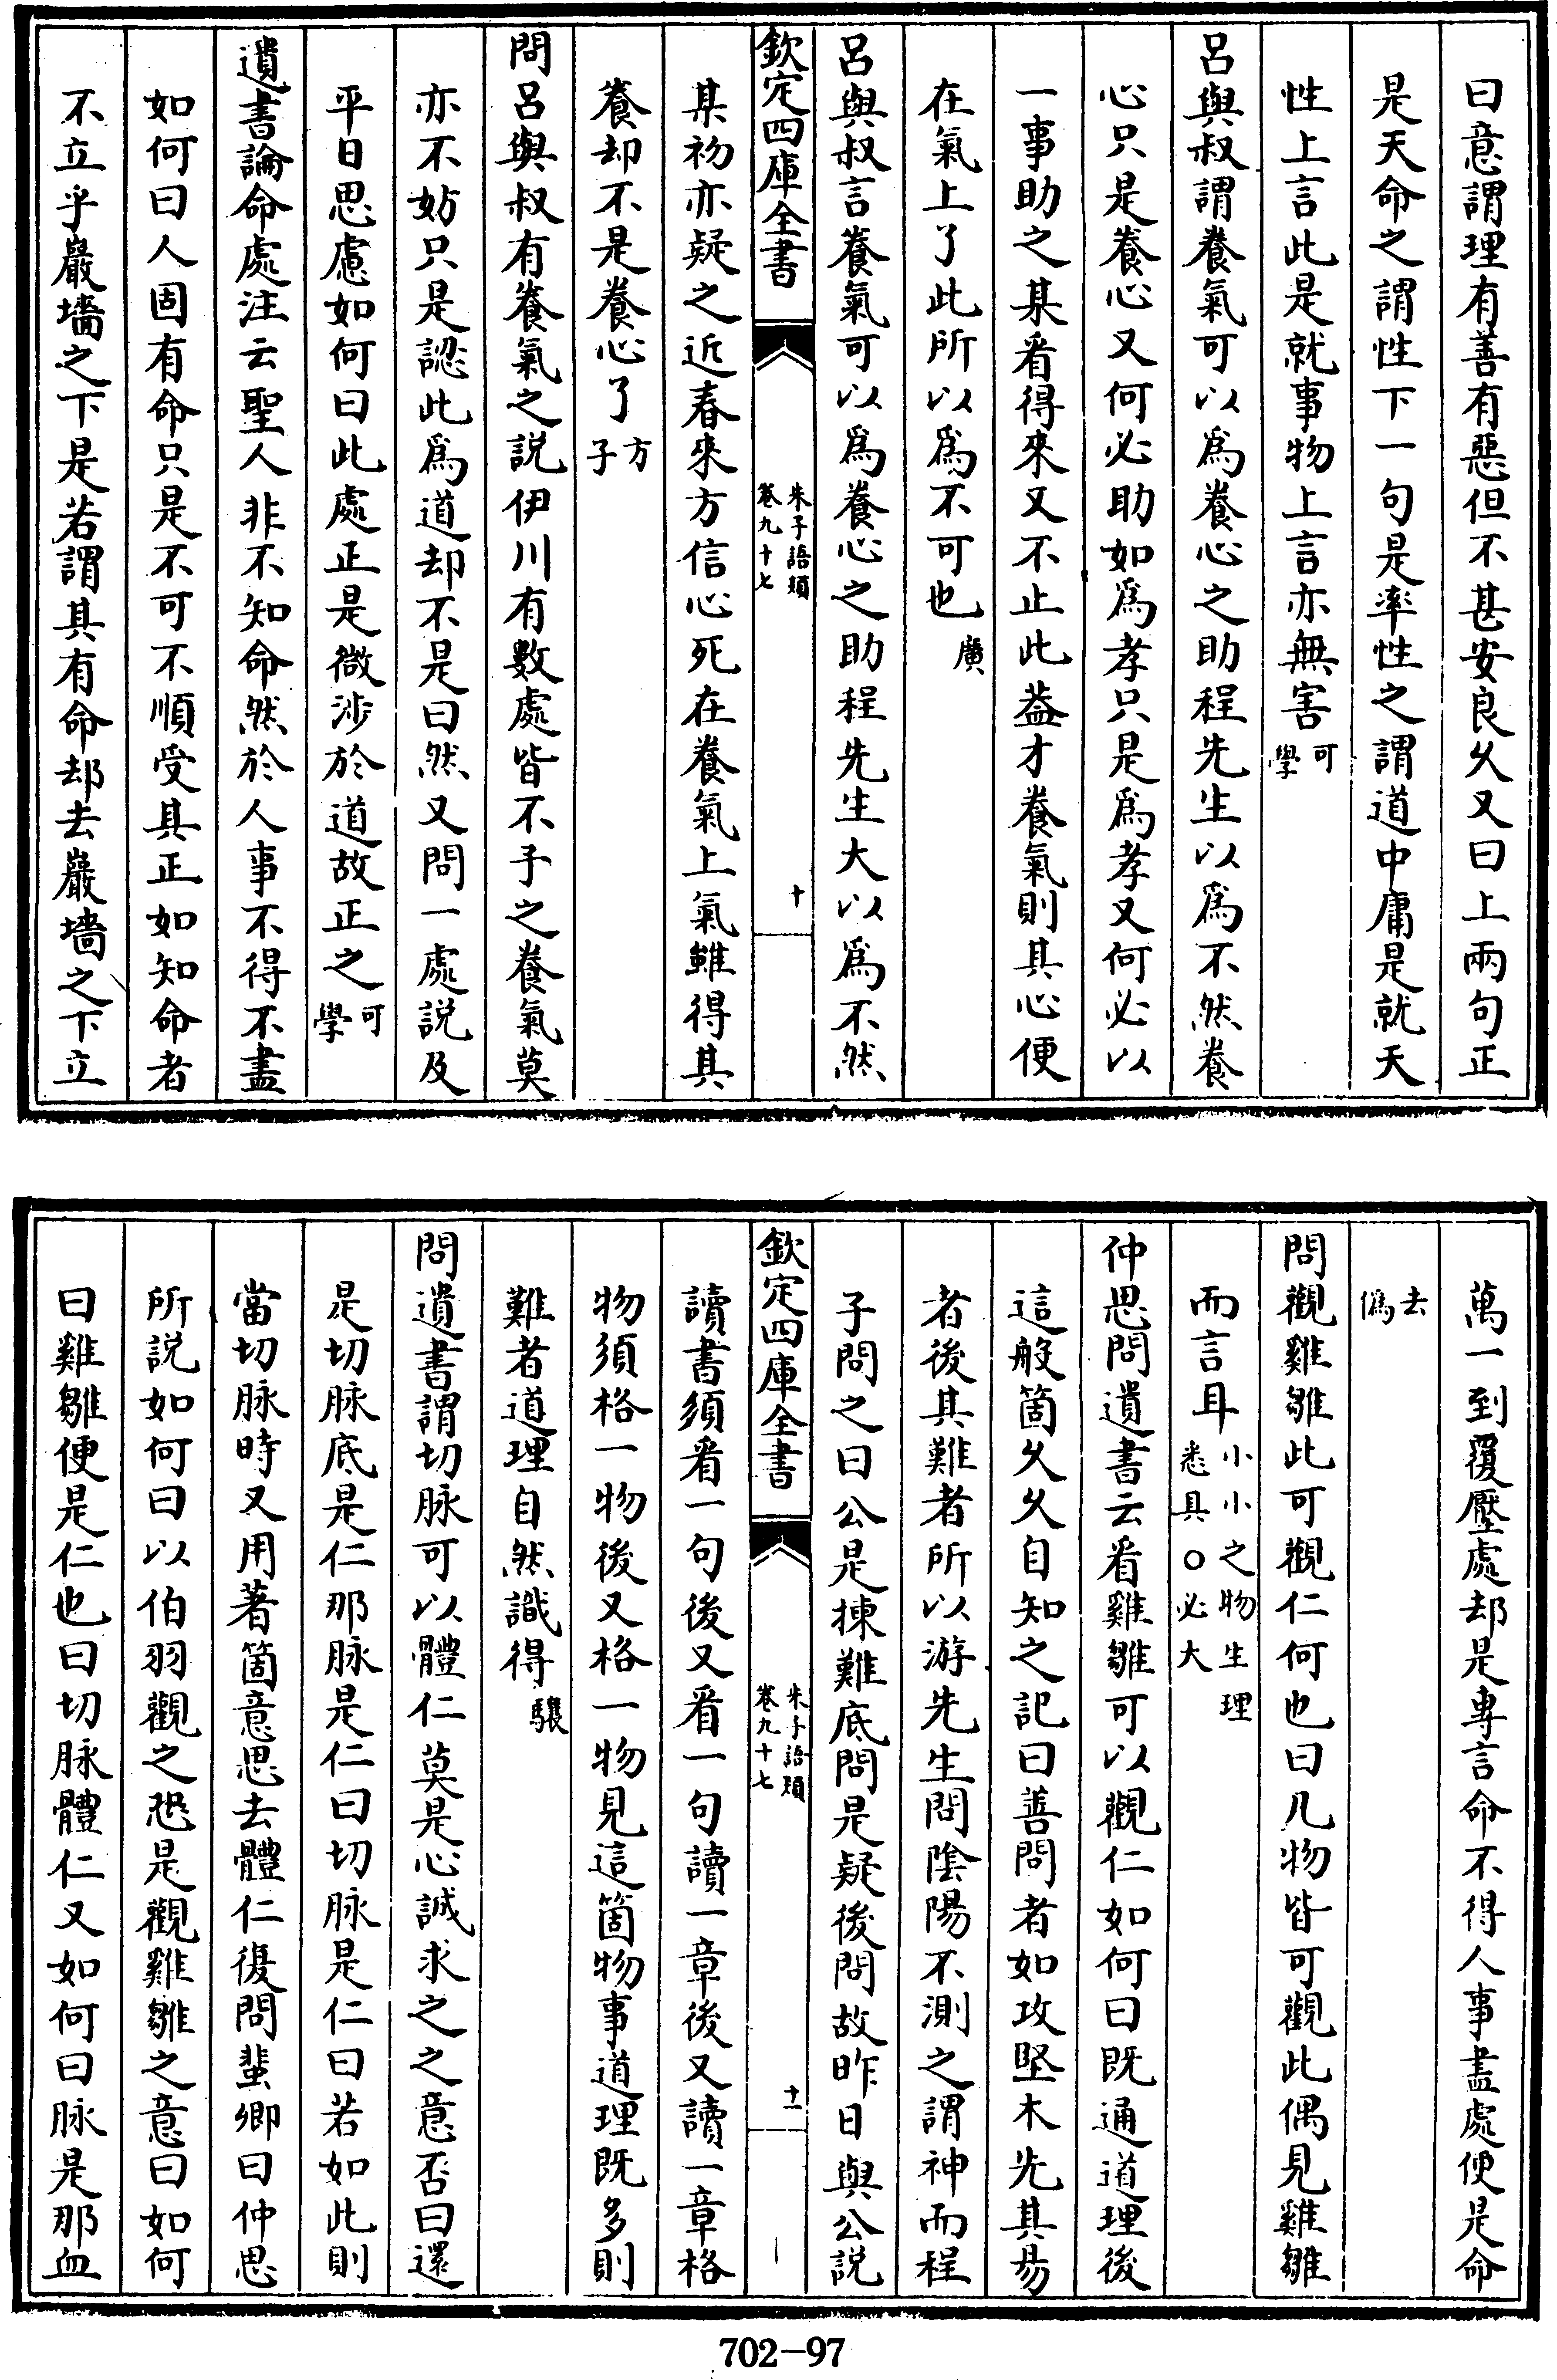 曰意謂理有善有惡但不甚安良久又曰上兩句正
是天命之謂性下一句是率性之謂道中庸是就天
性上言此是就事物上言亦無害可學
呂與叔謂養氣可以為養心之助程先生以為不然養
心只是養心又何必助如為孝只是為孝又何必以
一事助之某看得來又不止此葢才養氣則其心便
在氣上了此所以為不可也廣
呂與叔言養氣可以為養心之助程先生大以為不然
欽定四庫全書
朱子語類
卷九十七
十
某初亦疑之近春來方信心死在養氣上氣雖得其
養却不是養心了方子
問呂與叔有養氣之説伊川有數處皆不予之養氣莫
亦不妨只是認此為道却不是曰然又問一處説及
平日思慮如何曰此處正是微涉於道故正之可學
遺書論命處注云聖人非不知命然於人事不得不盡
如何曰人固有命只是不可不順受其正如知命者
不立乎巖墻之下是若謂其有命却去巖墻之下立
萬一到覆壓處却是專言命不得人事盡處便是命
去偽
問觀雞雛此可觀仁何也曰凡物皆可觀此偶見雞雛
而言耳小小之物生理悉具○必大
仲思問遺書云看雞雛可以觀仁如何曰既通道理後
這般箇久久自知之記曰善問者如攻堅木先其易
者後其難者所以游先生問陰陽不測之謂神而程
子問之曰公是揀難底問是疑後問故昨日與公説
欽定四庫全書
朱子語類
卷九十七
十一
讀書須看一句後又看一句讀一章後又讀一章格
物須格一物後又格一物見這箇物事道理既多則
難者道理自然識得驤
問遺書謂切脉可以體仁莫是心誠求之之意否曰還
是切脉底是仁那脉是仁曰切脉是仁曰若如此則
當切脉時又用著箇意思去體仁復問蜚卿曰仲思
所説如何曰以伯羽觀之恐是觀雞雛之意曰如何
曰雞雛便是仁也曰切脉體仁又如何曰脉是那血
702-97